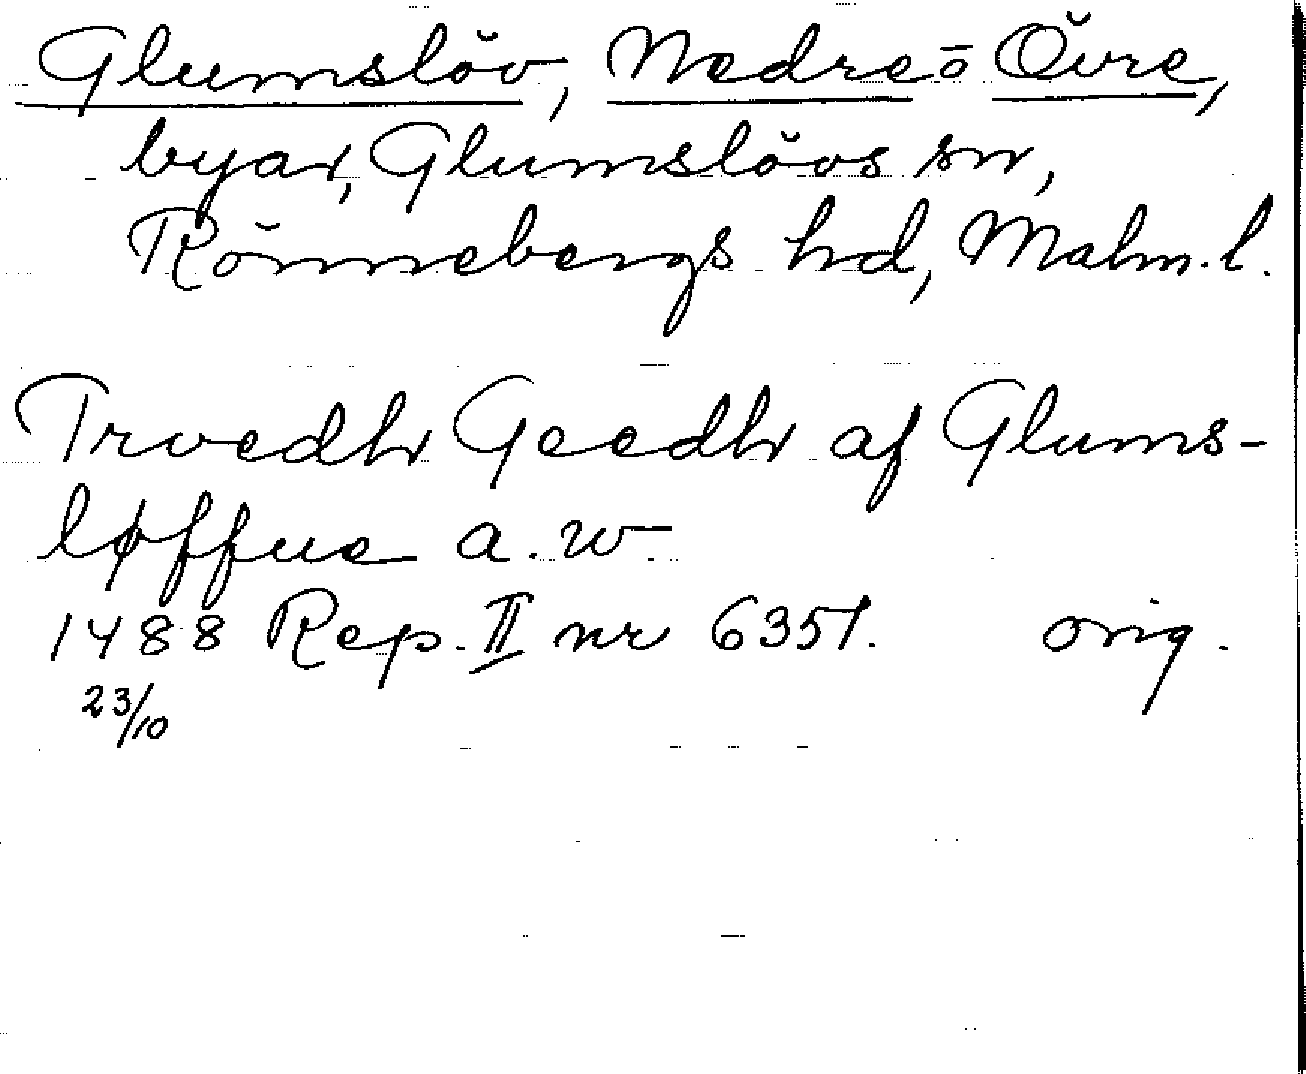 Glumslöv, Nedre- o Övre,
byar, Glumslövs sn,
Rönnebergs hd, Malm. l.
Trvedhr Geedhr af Glums-
løffue a. w.
1488 Rep. II nr 6351. orig.
23/10